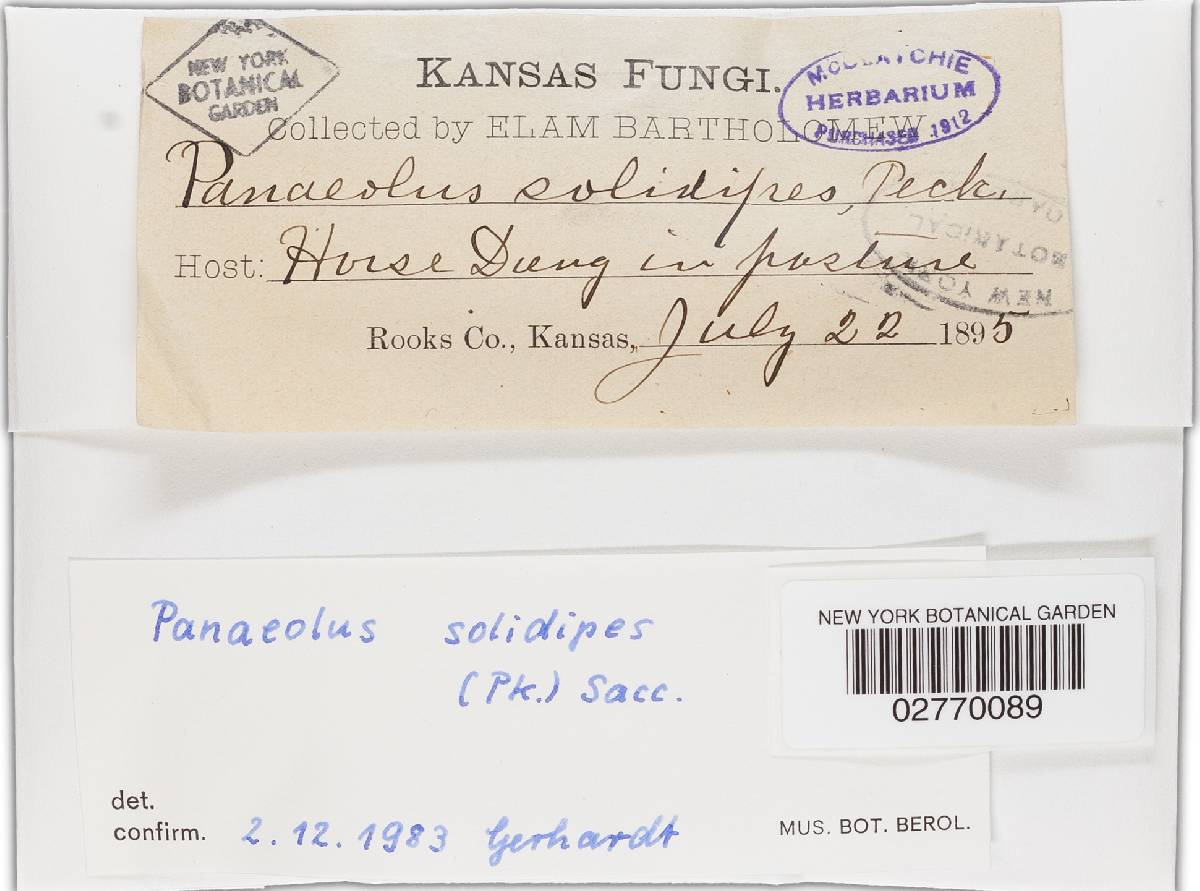 NEW YORK
BOTANICAL
GARDEN
KANSAS FUNGI.
McCLATCHIE
HERBARIUM
PURCHASED 1912
Collected by ELAM BARTHOLOMEW
Panaeolus solidipes, Peck.
NEW YORK
BOTANICAL
GARDEN
Host: Horse Dung in pasture
Rooks Co., Kansas, July 22 1895
Panaeolus solidipes
(Pk.) Sacc.
NEW YORK BOTANICAL GARDEN
02770089
det.
confirm. 2.12.1983 Gerhardt
MUS. BOT. BEROL.